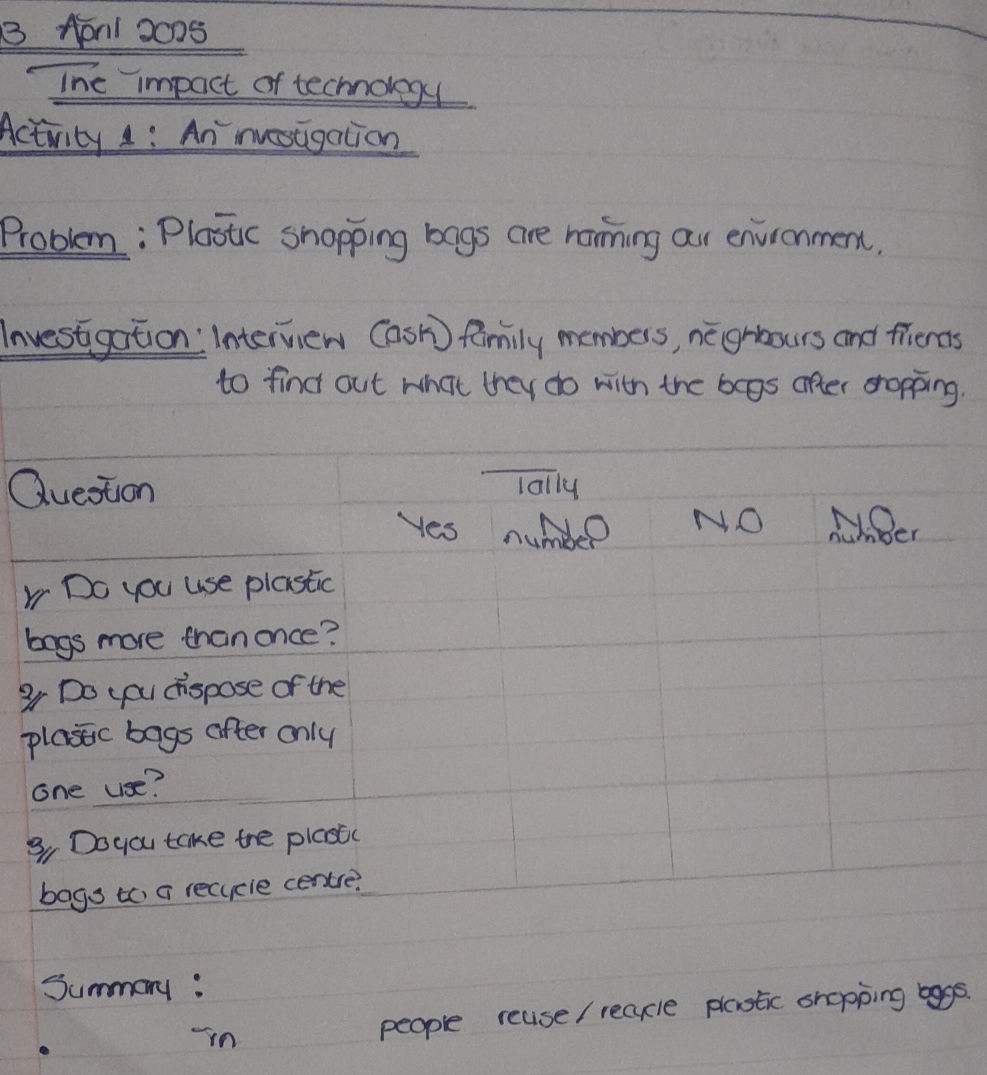 3 April 2025
The impact of technology
Activity 1: An investigation
Problem: Plastic shopping bags are harming our environment.
Investigation: Interview (ask) family members, neighbours and friends
to find out what they do with the bags after shopping.
Question Tally
Yes NO number NO NO number
1 Do you use plastic
bags more than once?
2 Do you dispose of the
plastic bags after only
one use?
3 Do you take the plastic
bags to a recycle centre?
Summary:
• in people reuse/recycle plastic shopping bags.